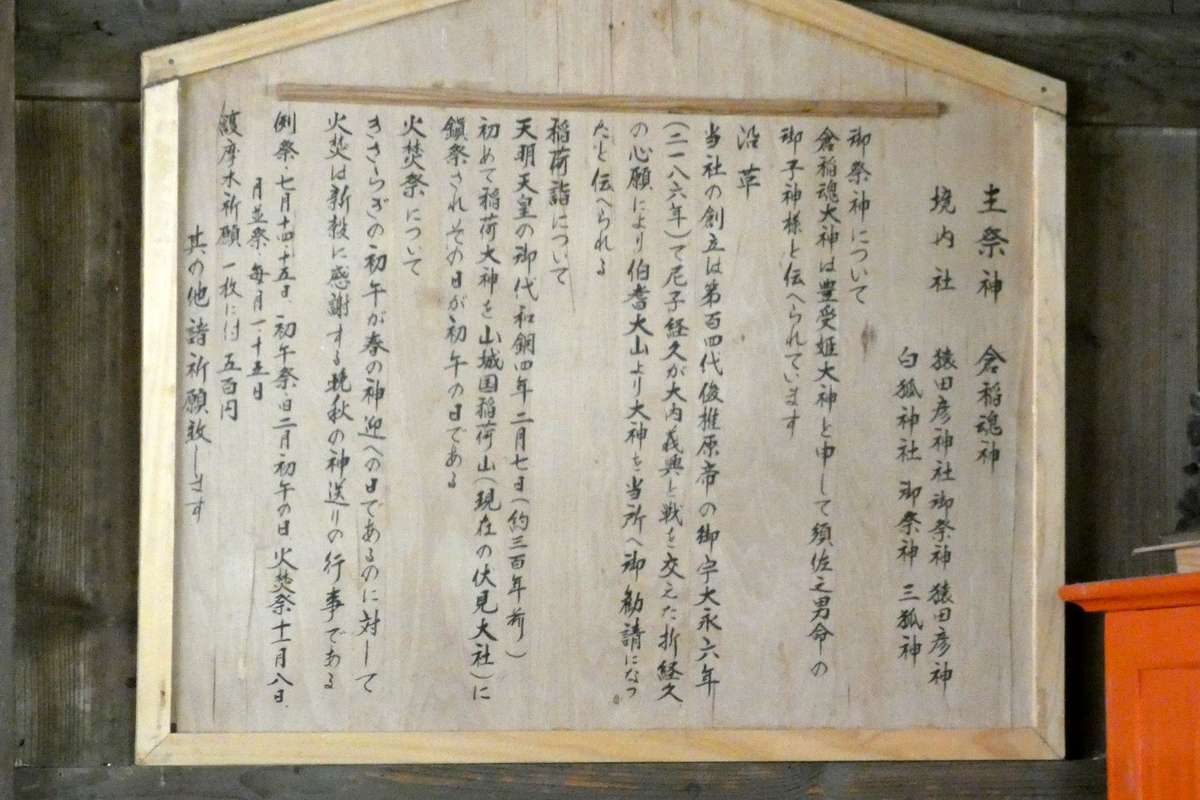 主祭神 倉稲魂神
境内社 猿田彦神社御祭神 猿田彦神
白狐神社 御祭神 三狐神
御祭神について
倉稲魂大神は豊受姫大神と申して須佐之男命の
御子神様と伝へられています
沿革
当社の創立は第百四代後推原帝の御宇大永六年
(二一八六年)て尼子経久が大内義興と戦を交えた折経久
の心願により伯耆大山より大神を当所へ御勧請になつ
たと伝へられる
稲荷詣について
天明天皇の御代和銅四年二月七日(約三百年前)
初めて稲荷大神を山城国稲荷山(現在の伏見大社)に
鎮祭されその日が初午の日である
火焚祭について
きさらぎの初午が春の神迎への日であるのに対して
火焚は新穀に感謝する晩秋の神送りの行事である
例祭 七月十四・十五日 初午祭・旧二月初午の日 火焚祭十一月八日
月並祭・毎月一・十五日
護摩木祈願 一枚に付 五百円
其の他諸祈願致します